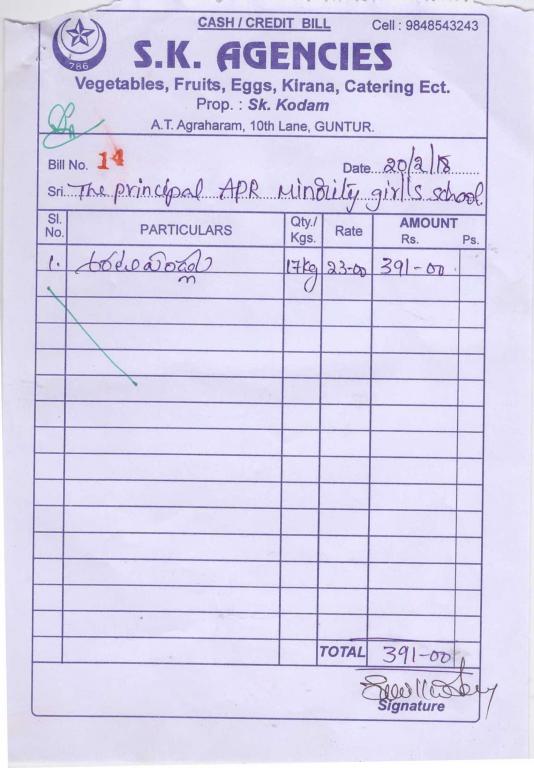 CASH / CREDIT BILL
Cell : 9848543243
786
S.K. AGENCIES
Vegetables, Fruits, Eggs, Kirana, Catering Ect.
Prop. : Sk. Kodam
A.T. Agraharam, 10th Lane, GUNTUR.
Bill No. 14
Date 20/2/18
Sri. The principal APR Minority girl's school
Sl. No. PARTICULARS Qty./ Kgs. Rate AMOUNT Rs. Ps.
1. 17kg 23-00 391-00
TOTAL 391-00
Signature